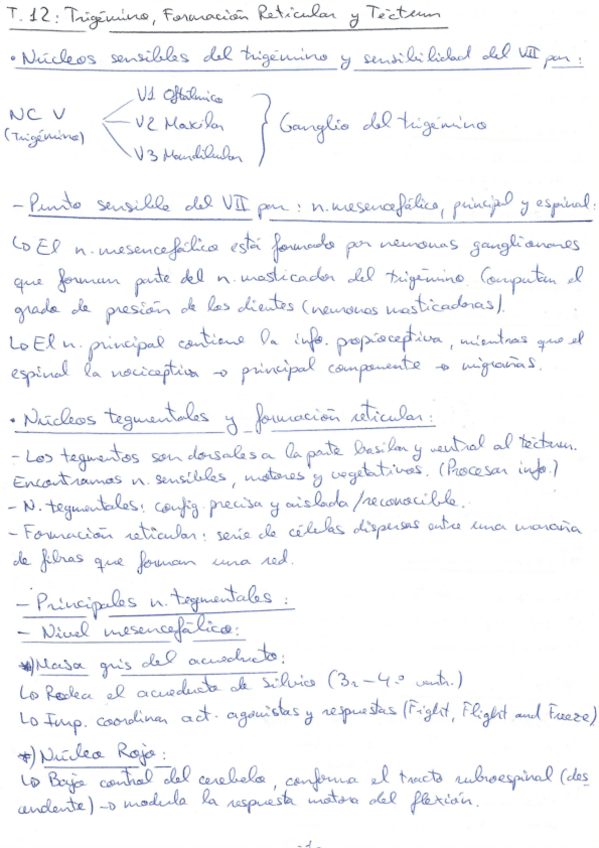 T.12: Trigémino, Formación Reticular y Téctum
• Núcleos sensibles del trigémino y sensibilidad del VII par:
V1 Oftálmico
NC V V2 Maxilar Ganglio del trigémino
(Trigémino)
V3 Mandibular
- Punto sensible del VII par: n. mesencefálico, principal y espinal:
↳ El n. mesencefálico está formado por neuronas ganglionares
que forman parte del n. masticador del trigémino. Computan el
grado de presión de los dientes (neuronas masticadoras).
↳ El n. principal contiene la info. propioceptiva, mientras que el
espinal la nociceptiva → principal componente → migrañas.
• Núcleos tegmentales y formación reticular:
- Los tegmentos son dorsales a la parte basilar y ventral al téctum.
Encontramos n. sensibles, motores y vegetativos. (Procesar info.)
- N. tegmentales: config. precisa y aislada/reconocible.
- Formación reticular: serie de células dispersas entre una maraña
de fibras que forman una red.
- Principales n. tegmentales:
- Nivel mesencefálico:
*) Masa gris del acueducto:
↳ Rodea el acueducto de Silvio (3r-4º ventr.)
↳ Imp. coordinar act. agonistas y respuestas (Fight, Flight and Freeze)
*) Núcleo Rojo:
↳ Bajo control del cerebelo, conforma el tracto rubroespinal (des
cendente) → modula la respuesta motora del flexión.
-1-